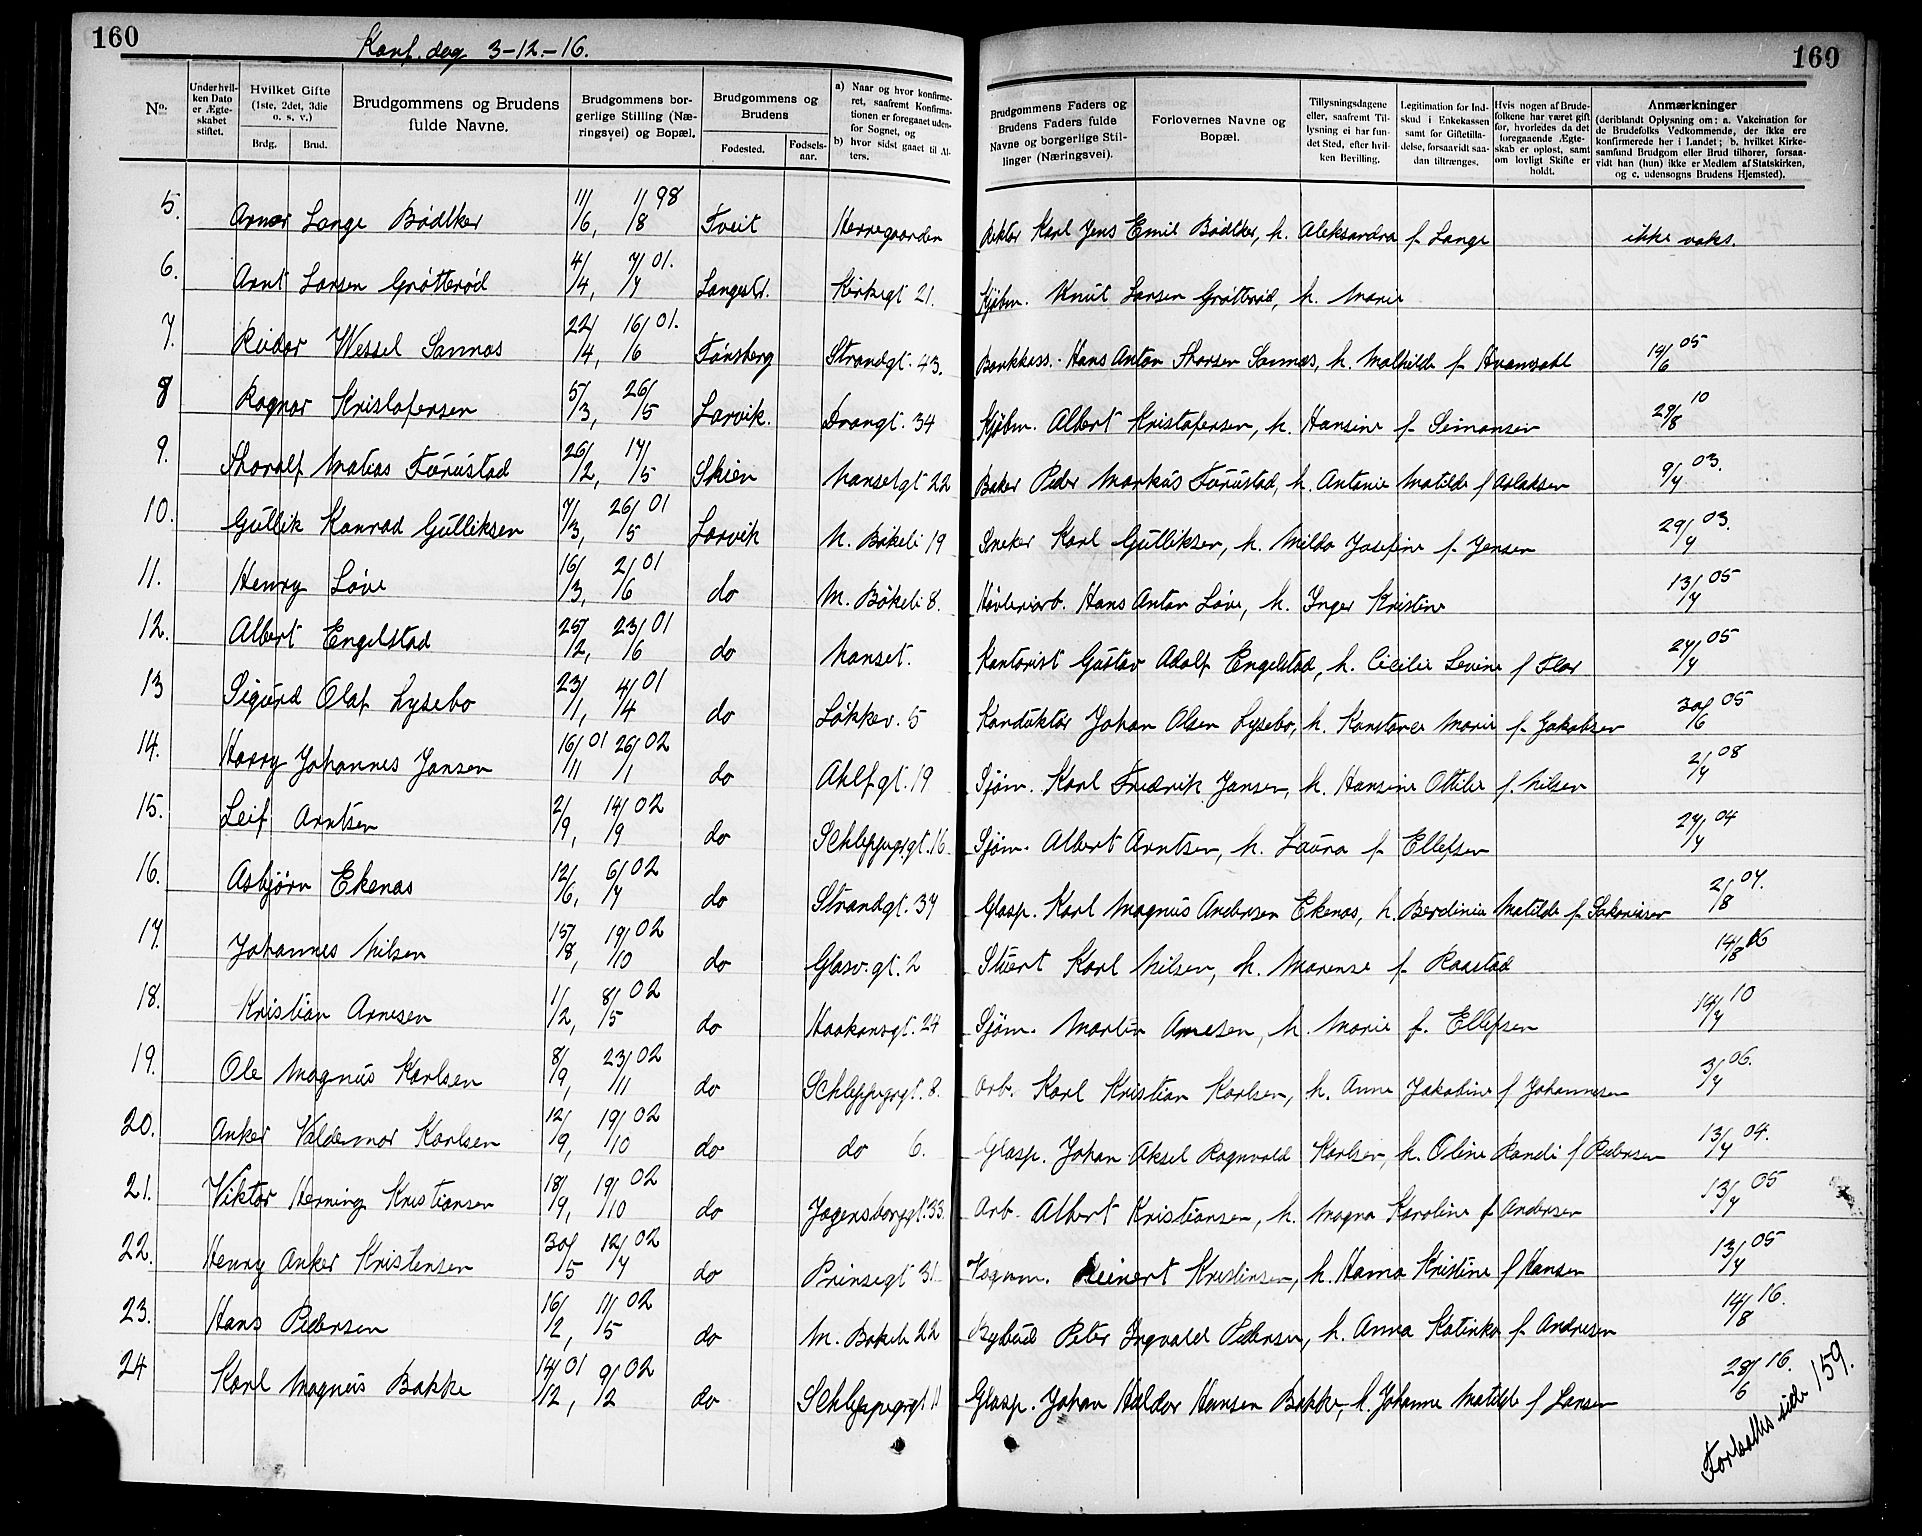 160
Konf. dag 3-12.-16.
160
No.
Under hvil-
ken Dato
er Ægte-
skabet
stiftet.
Hvilket Gifte
(1ste, 2det, 3die
o. s. v.)
Brdg.
Brud.
Brudgommens og Brudens
fulde Navne.
Brudgommens bor-
gerlige Stilling (Næ-
ringsvei) og Bopæl.
Brudgommens og
Brudens
Fødested.
Fødsels-
aar.
a) Naar og hvor konfirme-
ret, saafremt Konfirma-
tionen er foregaaet uden-
for Sognet, og
b) hvor sidst gaaet til Al-
ters.
Brudgommens Faders og
Brudens Faders fulde
Navne og borgerlige Stil-
linger (Næringsvei).
Forlovernes Navne og
Bopæl.
Tillysningsdagene
eller, saafremt Til-
lysning ei har fun-
det Sted, efter hvil-
ken Bevilling.
Legitimation for Ind-
skud i Enkekassen
samt for Giftetilla-
delse, forsaavidt saa-
dan tiltrænges.
Hvis nogen af Brude-
folkene har været gift
før, hvorledes da det
foregaaende Ægte-
skab er opløst, samt
om lovligt Skifte er
holdt.
Anmærkninger
(deriblandt Oplysning om: a. Vakcination for
de Brudefolks Vedkommende, der ikke ere
konfirmerede her i Landet; b. hvilket Kirke-
samfund Brudgom eller Brud tilhører, forsaa-
vidt han (hun) ikke er Medlem af Statskirken,
og c. udensogns Brudens Hjemsted).
5. Arner Lange Bødtker 11/6, 1/8 98 Tveit Herregaarden Rektor Karl Jens Emil Bødtker, h. Aleksandra f. Lange ikke vaks.
6. Arnt Larsen Grøtterød 4/4, 7/7 01. Langestr. Kirkegt 21. Kjøbm. Knut Larsen Grøtterød, h. Marie
7. Reidar Wessel Sannæs 22/4, 16/6 01. Tønsberg Strandgt. 43. Bankkass. Hans Anton Thorsen Sannæs, h. Mathilde f. Hvamdahl 14/6 05
8 Ragnar Kristofersen 5/3, 26/5 Larvik. Drangt. 34 Kjøbm. Albert Kristofersen, h. Hansine f. Simonsen 29/8 10
9. Thoralf Matias Furustad 26/2, 17/5 Skien Nansetgt 22 Baker Peder Markus Furustad, h. Antonie Matilde f Aslaksen 9/7 03.
10. Gullik Konrad Gulliksen 7/3, 26/5 01 Larvik N. Bøkeli 19 Sneker Karl Gulliksen, h. Milda Josefine f. Jensen 29/7 03.
11. Henry Løve 16/3, 2/6 01 do M. Bøkeli 8. Høvleriarb. Hans Anton Løve, h. Inger Kristine 13/7 05
12. Albert Engelstad 25/12, 23/6 01 do Nanset. Kontorist Gustav Adolf Engelstad, h. Cicilie Levine f Flor 27/7 05
13 Sigurd Olaf Lysebo 23/1, 4/4 01 do Løkkev. 5 Konduktør Johan Olsen Lysebo, h. Konstance Marie f. Jakobsen 30/6 05
14. Harry Johannes Jansen 16/11 01 26/1 02 do Ahlf.gt. 19 Sjøm. Karl Fredrik Jansen, h. Hansine Ottilie f. Nilsen 2/7 08
15. Leif Arntsen 2/9, 14/9 02 do Schleppegrgt. 16 Sjøm. Albert Arntsen, h. Laura f. Ellefsen 27/7 04
16. Asbjørn Ekenæs 12/6, 6/7 02 do Strandgt. 37 Glasp. Karl Magnus Andersen Ekenæs, h. Berdinie Matilde f. Sakariasen 2/8 07.
17. Johannes Nilsen 15/8, 19/10 02 do Glasv.gt. 2 Stuert Karl Nilsen, h. Marense f. Raastad 14/8 06
18. Kristian Arnesen 1/2, 8/5 02 do Haakonsgt. 24 Sjøm. Martin Arnesen, h. Marie f. Ellefsen 14/7 10
19. Ole Magnus Karlsen 8/9, 23/11 02 do Schleppegrgt. 8. Arb. Karl Kristian Karlsen, h. Anne Jakobine f Johannesen 3/7 06.
20. Anker Valdemar Karlsen 12/9, 19/10 02 do do 6. Glasp. Johan Aksel Ragnvald Karlsen, h. Oline Randi f Pedersen 13/7 04.
21. Viktor Herning Kristiansen 18/9, 19/10 02 do Jegersborggt. 33. Arb. Albert Kristiansen, h. Magna Karoline f Andersen 13/7 05
22. Henry Anker Kristensen 30/5 12/7 02 do Prinsegt 31 Vognm. Reinert Kristensen, h. Hanna Kristine f Hansen 13/7 05
23. Hans Pedersen 16/2, 11/5 02 do M. Bøkeli 22 Bybud Peter Ingvald Pedersen, h. Anna Katinka f. Andresen 14/8 16.
24 Karl Magnus Bakke 14/12 01, 9/2 02 do Schleppegrgt 11 Glasp. Johan Haldor Hansen Bakke, h. Johanne Matilde f Larsen 28/6 16.
Fortsættes side 159.